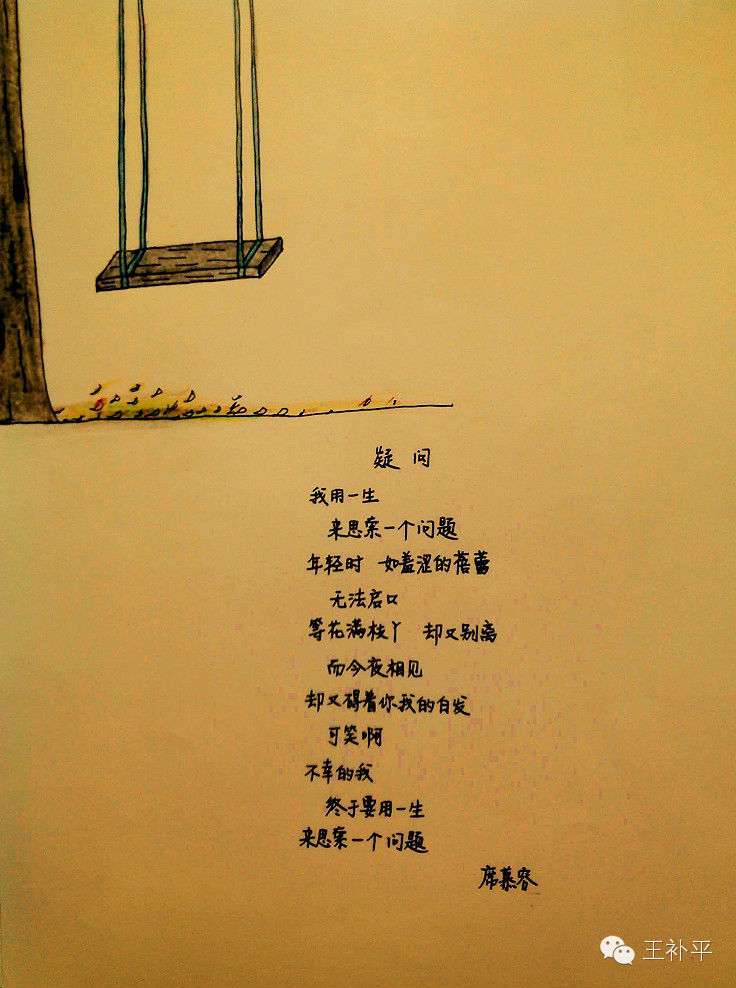 疑 问
我用一生
来思索一个问题
年轻时 如羞涩的蓓蕾
无法启口
等花满枝丫 却又别离
而今夜相见
却又碍着你我的白发
可笑啊
不幸的我
终于要用一生
来思索一个问题
席慕容
王补平